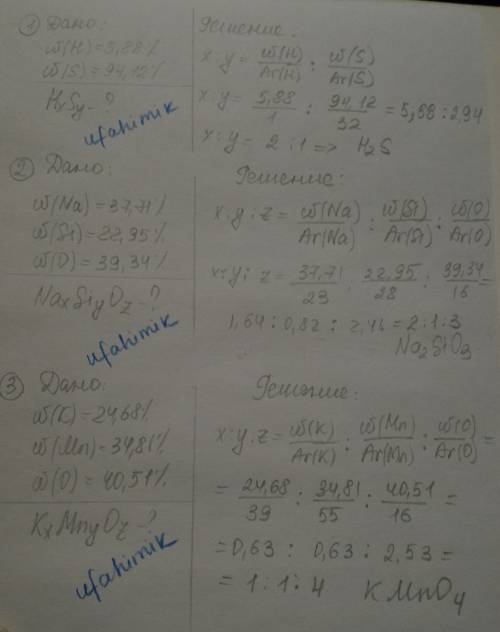 ① Дано:
ω(H)=5,88%
ω(S)=94,12%
HxSy - ?
ufahimik
Решение:
x:y = ω(H)/Ar(H) : ω(S)/Ar(S)
x:y = 5,88/1 : 94,12/32 = 5,88:2,94
x:y = 2:1 => H2S
② Дано:
ω(Na)=37,71%
ω(Si)=22,95%
ω(O)=39,34%
NaxSiyOz - ?
ufahimik
Решение:
x:y:z = ω(Na)/Ar(Na) : ω(Si)/Ar(Si) : ω(O)/Ar(O)
x:y:z = 37,71/23 : 22,95/28 : 39,34/16 =
1,64:0,82:2,46=2:1:3
Na2SiO3
③ Дано:
ω(K)=24,68%
ω(Mn)=34,81%
ω(O)=40,51%
KxMnyOz - ?
ufahimik
Решение:
x:y:z = ω(K)/Ar(K) : ω(Mn)/Ar(Mn) : ω(O)/Ar(O) =
= 24,68/39 : 34,81/55 : 40,51/16 =
=0,63 : 0,63 : 2,53=
= 1:1:4 KMnO4